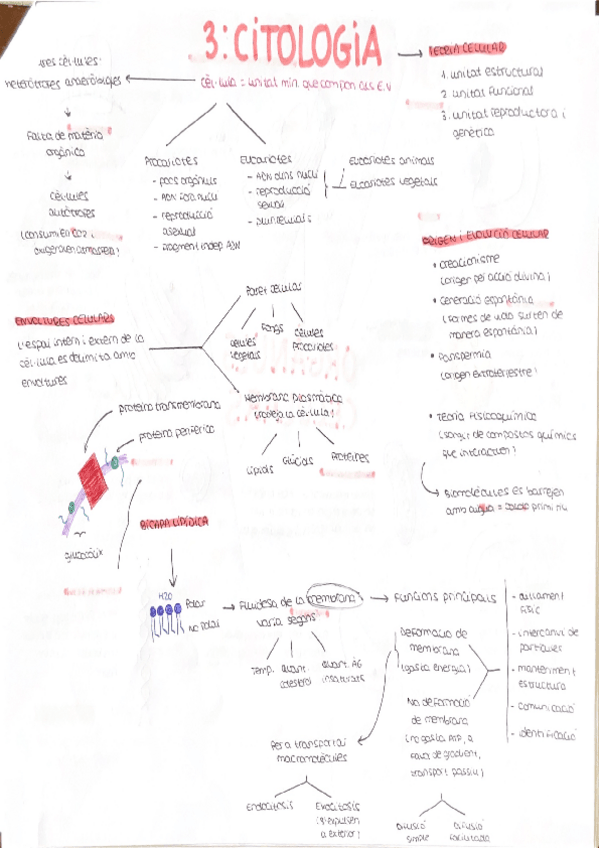 3: CITOLOGIA
TEORIA CEL·LULAR
1. unitat estructural
2. unitat funcional
3. unitat reproductora i
genètica
cèl·lules
heteròtrofes anaeròbiques
Cèl·lula = unitat min. que compon als E.V
Falta de matèria
orgànica
cèl·lules
autòtrofes
Procariotes
- pocs orgànuls
- ADN fora nucli
- reproducció
asexual
- fragment indep ADN
Eucariotes
- ADN dins nucli
- reproducció
sexual
- pluricel·lulars
Eucariotes animals
Eucariotes vegetals
ORIGEN I EVOLUCIÓ CEL·LULAR
• Creacionisme
(origen per acció divina)
• Generació espontània
(formes de vida surten de
manera espontània)
• Panspermia
(origen extraterrestre)
• Teoria Fisicoquímica
(sorgir de compostos químics
que interactuen)
Biomolècules es barrejen
amb aigua = caldo primitiu
ENVOLTURES CEL·LULARS
L'espai intern i extern de la
cèl·lula es delimita amb
envoltures
Paret cel·lular
cèl·lules
vegetals
Fongs
cèl·lules
procariotes
Membrana plasmàtica
(rodeja la cèl·lula)
Lípids
Glúcids
Proteïnes
proteïna transmembrana
proteïna perifèrica
glucocàlix
BICAPA LIPÍDICA
H2O
Polar
No Polar
Fluïdesa de la membrana
varia segons
Temp.
quant.
colesterol
quant. AG
insaturats
Funcions principals
- aïllament
físic
- intercanvi de
partícules
- manteniment
estructura
- comunicació
- identificació
Deformació de
membrana
(gasta energia)
No deformació
de membrana
(no gasta ATP, a
favor de gradient,
transport passiu)
Per a transportar
macromolècules
Endocitosis
Exocitosis
(s'expulsen
a exterior)
Difusió
simple
Difusió
facilitada